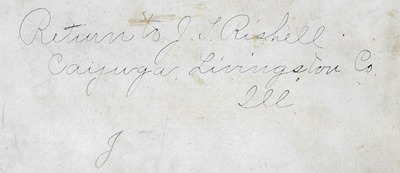 Return to J. F. Rishell.
Cayuga, Livingston Co.
Ill.
J